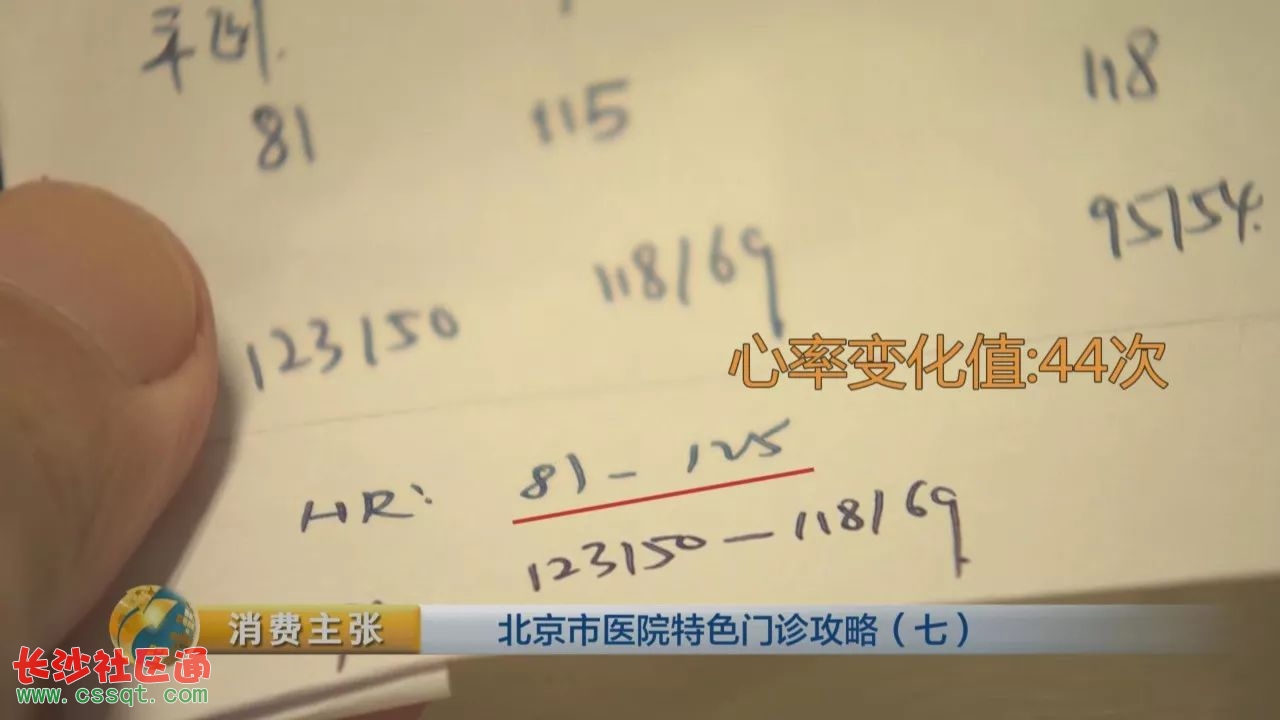 平卧.
81
115
118
95/54.
118/69
123/50
心率变化值:44次
HR: 81 - 125
123/50 — 118/69
消费主张
北京市医院特色门诊攻略（七）
长沙社区通
www.cssqt.com